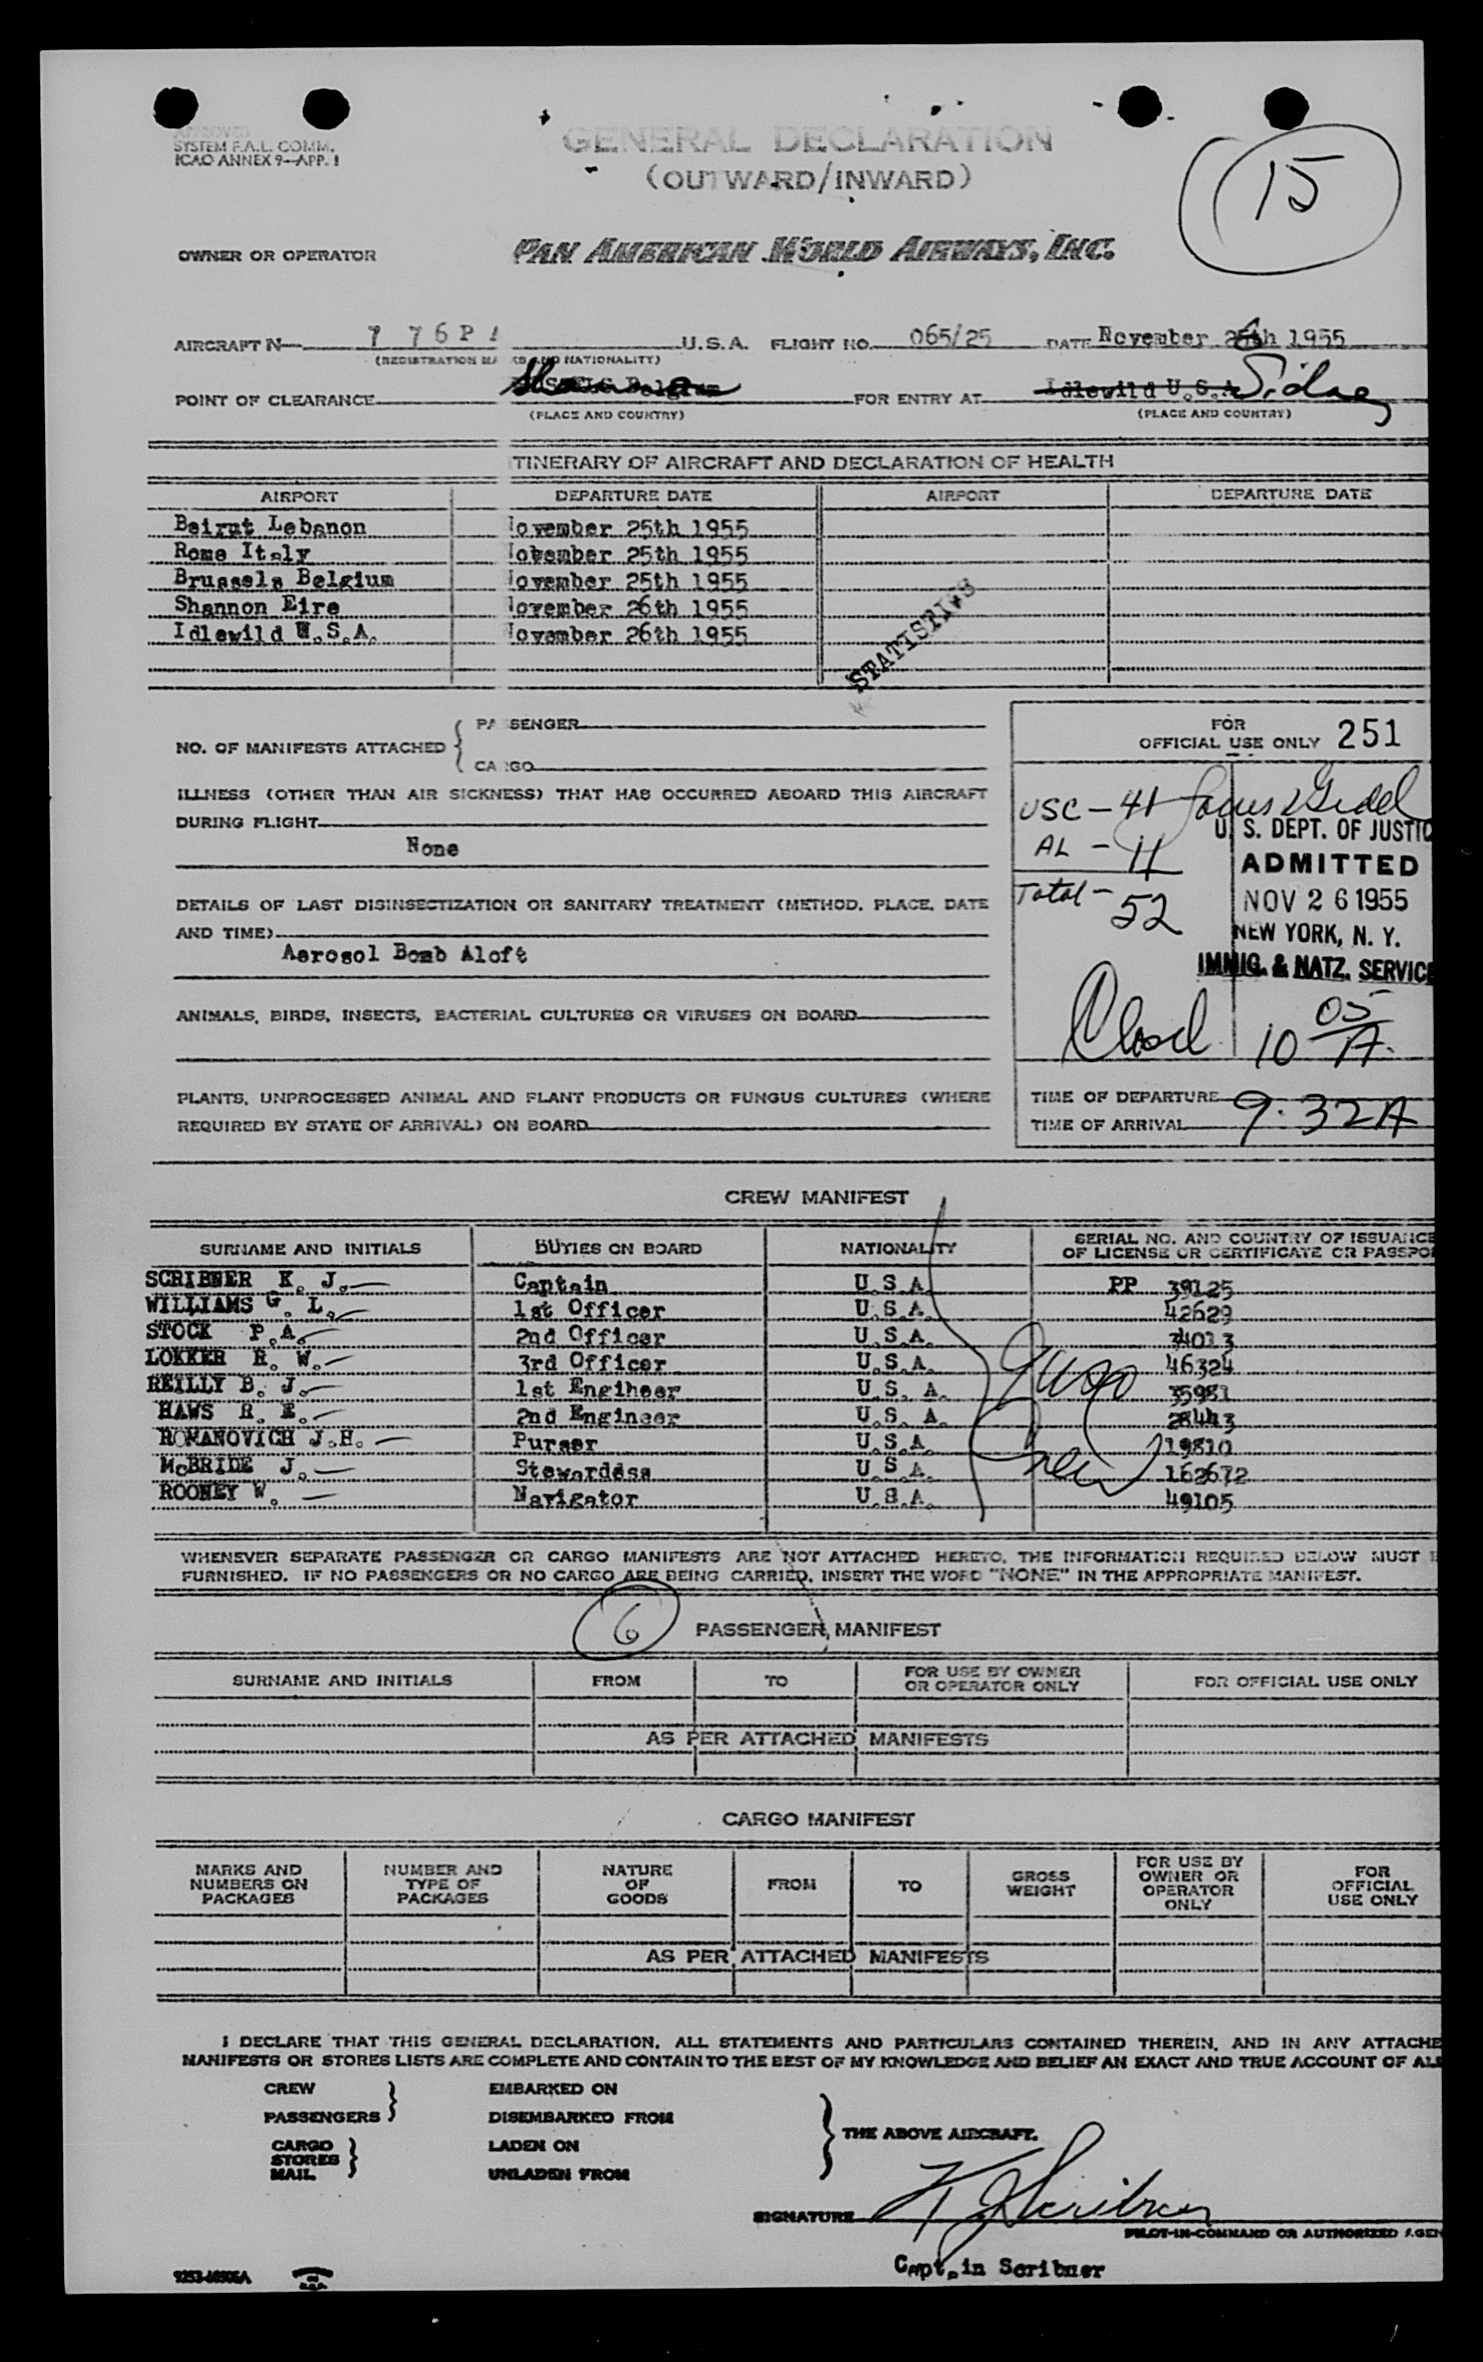 APPROVED
SYSTEM F.A.L. COMM.
ICAO ANNEX 9—APP. 1
GENERAL DECLARATION
(OUTWARD/INWARD)
15
OWNER OR OPERATOR PAN AMERICAN WORLD AIRWAYS, INC.
AIRCRAFT N— 776P U.S.A. FLIGHT NO. 065/25 DATE November 26th 1955
(REGISTRATION MA KS AND NATIONALITY)
POINT OF CLEARANCE Belgium FOR ENTRY AT Idlewild U.S.A.
(PLACE AND COUNTRY) (PLACE AND COUNTRY)
TINERARY OF AIRCRAFT AND DECLARATION OF HEALTH
AIRPORT DEPARTURE DATE AIRPORT DEPARTURE DATE
Beirut Lebanon ovember 25th 1955
Rome Italy ovember 25th 1955
Brussels Belgium ovember 25th 1955
Shannon Eire ovember 26th 1955
Idlewild U.S.A. ovember 26th 1955
STATISTICS
NO. OF MANIFESTS ATTACHED { PA SSENGER
CA GO
FOR
OFFICIAL USE ONLY 251
ILLNESS (OTHER THAN AIR SICKNESS) THAT HAS OCCURRED ABOARD THIS AIRCRAFT
DURING FLIGHT
None
USC - 41
AL - 11
Total - 52
U. S. DEPT. OF JUSTIC
ADMITTED
NOV 26 1955
NEW YORK, N. Y.
IMMIG. & NATZ. SERVICE
Closed 10 05 A.
DETAILS OF LAST DISINSECTIZATION OR SANITARY TREATMENT (METHOD, PLACE, DATE
AND TIME)
Aerosol Bomb Aloft
ANIMALS, BIRDS, INSECTS, BACTERIAL CULTURES OR VIRUSES ON BOARD
PLANTS, UNPROCESSED ANIMAL AND PLANT PRODUCTS OR FUNGUS CULTURES (WHERE
REQUIRED BY STATE OF ARRIVAL) ON BOARD
TIME OF DEPARTURE
TIME OF ARRIVAL 9:32A
CREW MANIFEST
SURNAME AND INITIALS DUTIES ON BOARD NATIONALITY SERIAL NO. AND COUNTRY OF ISSUANCE
OF LICENSE OR CERTIFICATE OR PASSPO
SCRIBNER K. J. Captain U.S.A. PP 39125
WILLIAMS G. L. 1st Officer U.S.A. 42629
STOCK P.A. 2nd Officer U.S.A. 34013
LOKKER R. W. 3rd Officer U.S.A. 46324
REILLY B. J. 1st Engineer U.S.A. 35981
HAWS R. E. 2nd Engineer U.S.A. 28443
ROMANOVICH J.H. Purser U.S.A. 19810
McBRIDE J. Stewardess U.S.A. 162672
ROONEY W. Navigator U.S.A. 49105
Crew
WHENEVER SEPARATE PASSENGER OR CARGO MANIFESTS ARE NOT ATTACHED HERETO, THE INFORMATION REQUIRED BELOW MUST
FURNISHED. IF NO PASSENGERS OR NO CARGO ARE BEING CARRIED, INSERT THE WORD "NONE" IN THE APPROPRIATE MANIFEST.
6 PASSENGER MANIFEST
SURNAME AND INITIALS FROM TO FOR USE BY OWNER
OR OPERATOR ONLY FOR OFFICIAL USE ONLY
AS PER ATTACHED MANIFESTS
CARGO MANIFEST
MARKS AND
NUMBERS ON
PACKAGES
NUMBER AND
TYPE OF
PACKAGES
NATURE
OF
GOODS
FROM
TO
GROSS
WEIGHT
FOR USE BY
OWNER OR
OPERATOR
ONLY
FOR
OFFICIAL
USE ONLY
AS PER ATTACHED MANIFESTS
I DECLARE THAT THIS GENERAL DECLARATION, ALL STATEMENTS AND PARTICULARS CONTAINED THEREIN, AND IN ANY ATTACHE
MANIFESTS OR STORES LISTS ARE COMPLETE AND CONTAIN TO THE BEST OF MY KNOWLEDGE AND BELIEF AN EXACT AND TRUE ACCOUNT OF ALL
CREW EMBARKED ON
PASSENGERS DISEMBARKED FROM
THE ABOVE AIRCRAFT.
CARGO LADEN ON
STORES
MAIL UNLADEN FROM
SIGNATURE K J Scribner
PILOT-IN-COMMAND OR AUTHORIZED AGEN
Captain Scribner